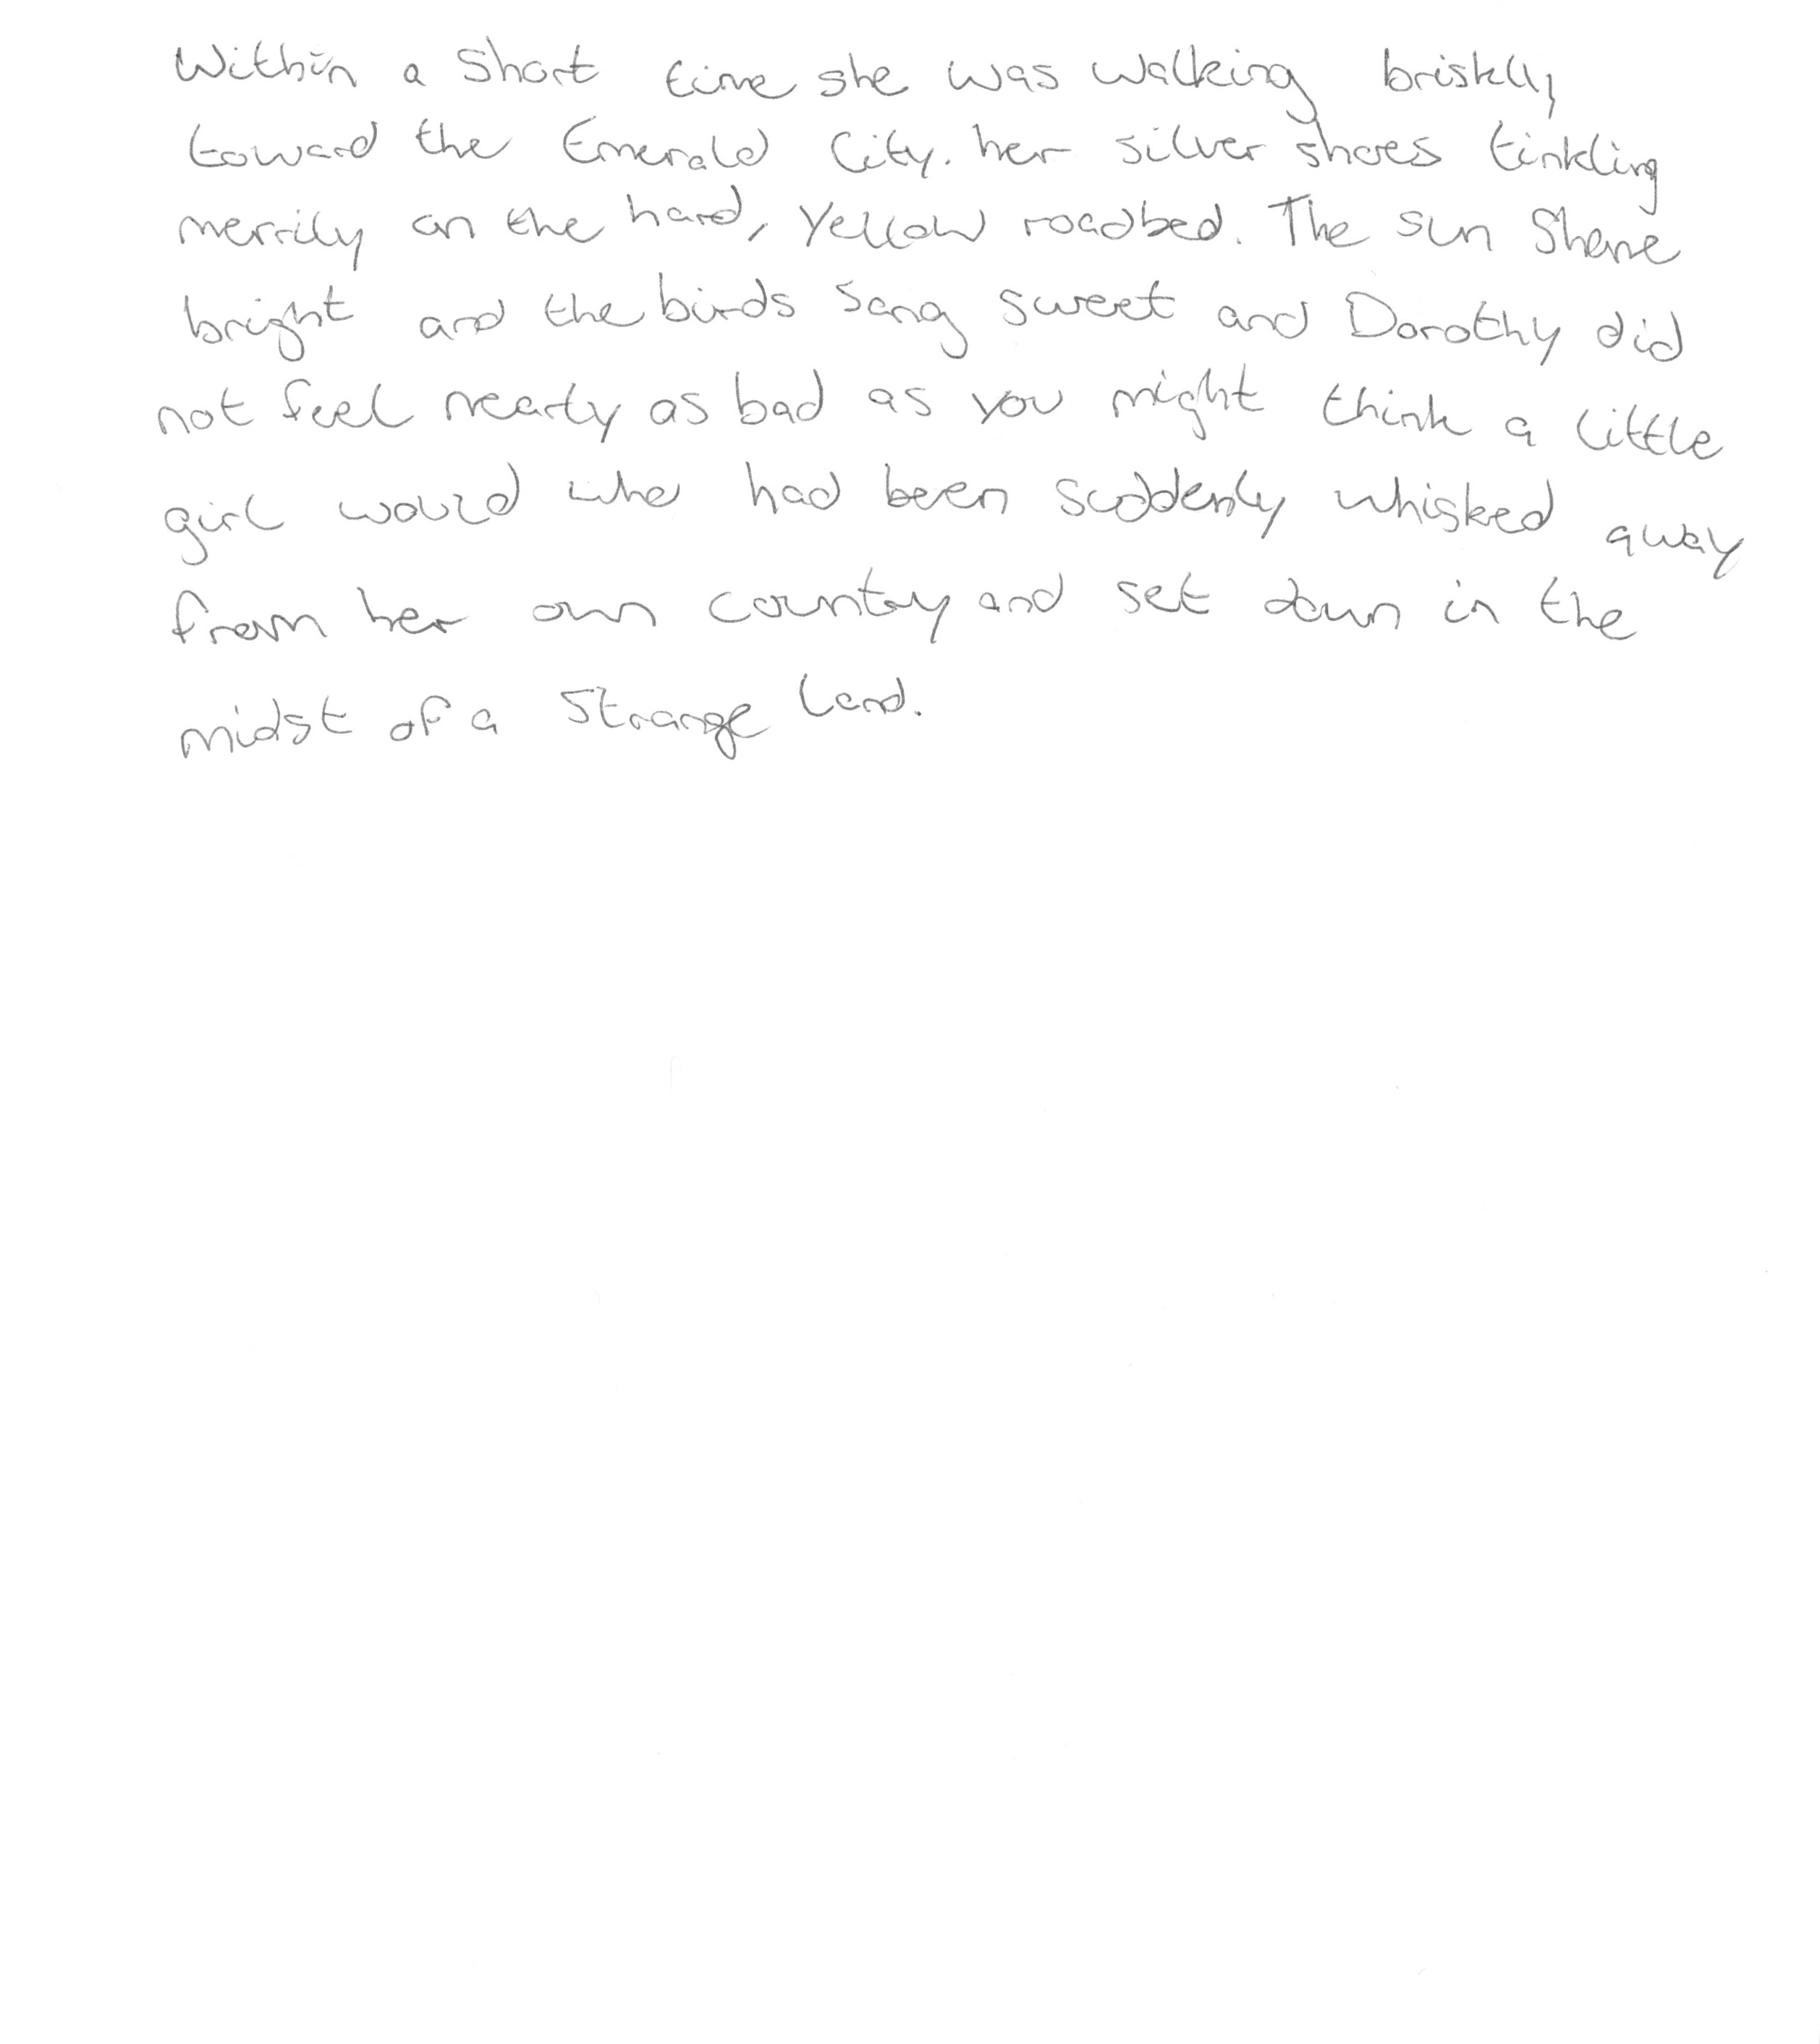 Within a short time she was walking briskly
toward the Emerald City. her silver shoes tinkling
merrily on the hard, yellow roadbed. The sun shone
bright and the birds sang sweet and Dorothy did
not feel nearly as bad as you might think a little
girl would who had been suddenly whisked away
from her own country and set down in the
midst of a strange land.